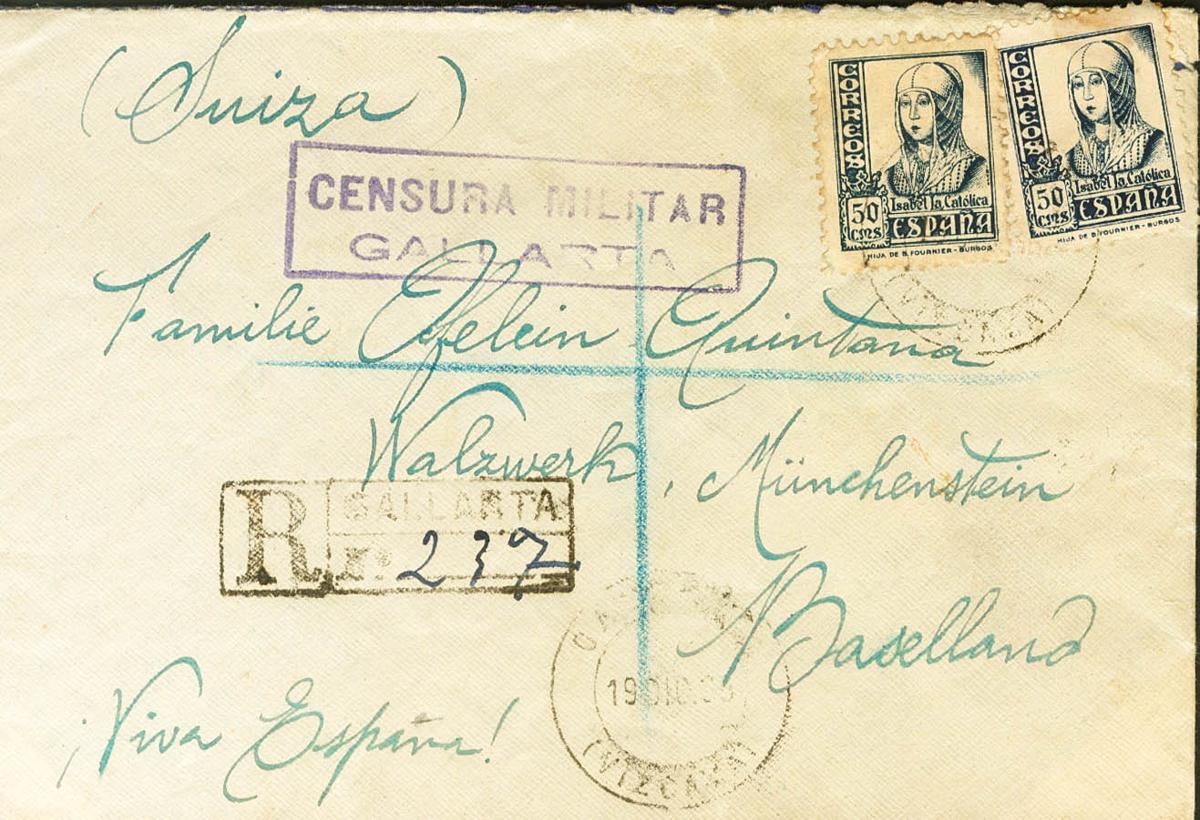 (Suiza)
CORREOS
50 CMS
Isabel la Católica
ESPAÑA
HIJA DE B. FOURNIER - BURGOS
CORREOS
50 CMS
Isabel la Católica
ESPAÑA
HIJA DE B. FOURNIER - BURGOS
CENSURA MILITAR
GALLARTA
(VIZCAYA)
Familie Quintana
Walzwerk, Münchenstein
R GALLARTA
237
Baselland
19 DIC. 38
(VIZCAYA)
¡Viva España!